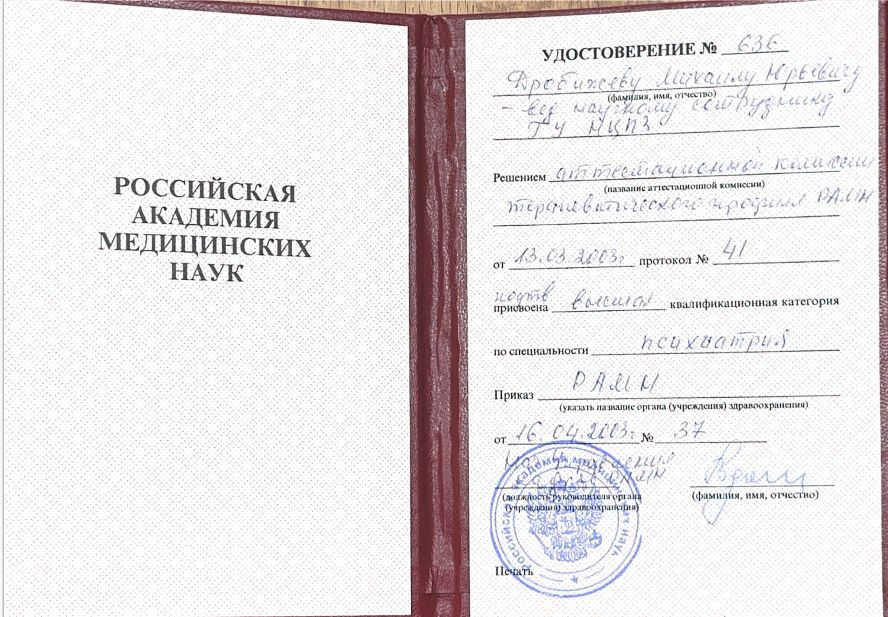 РОССИЙСКАЯ
АКАДЕМИЯ
МЕДИЦИНСКИХ
НАУК
УДОСТОВЕРЕНИЕ № 636
Дробижеву Михаилу Юрьевичу
(фамилия, имя, отчество)
- вед научному сотруднику
ГУ НЦПЗ
Решением аттестационной комиссии
(название аттестационной комиссии)
терапевтического профиля РАМН
от 13.03.2003г протокол № 41
подтв
присвоена высшая квалификационная категория
по специальности психиатрия
Приказ РАМН
(указать название органа (учреждения) здравоохранения)
от 16.04.2003г № 37
Нач Управления
РАМН
(должность руководителя органа
(учреждения) здравоохранения)
(фамилия, имя, отчество)
Российская академия медицинских наук
Печать